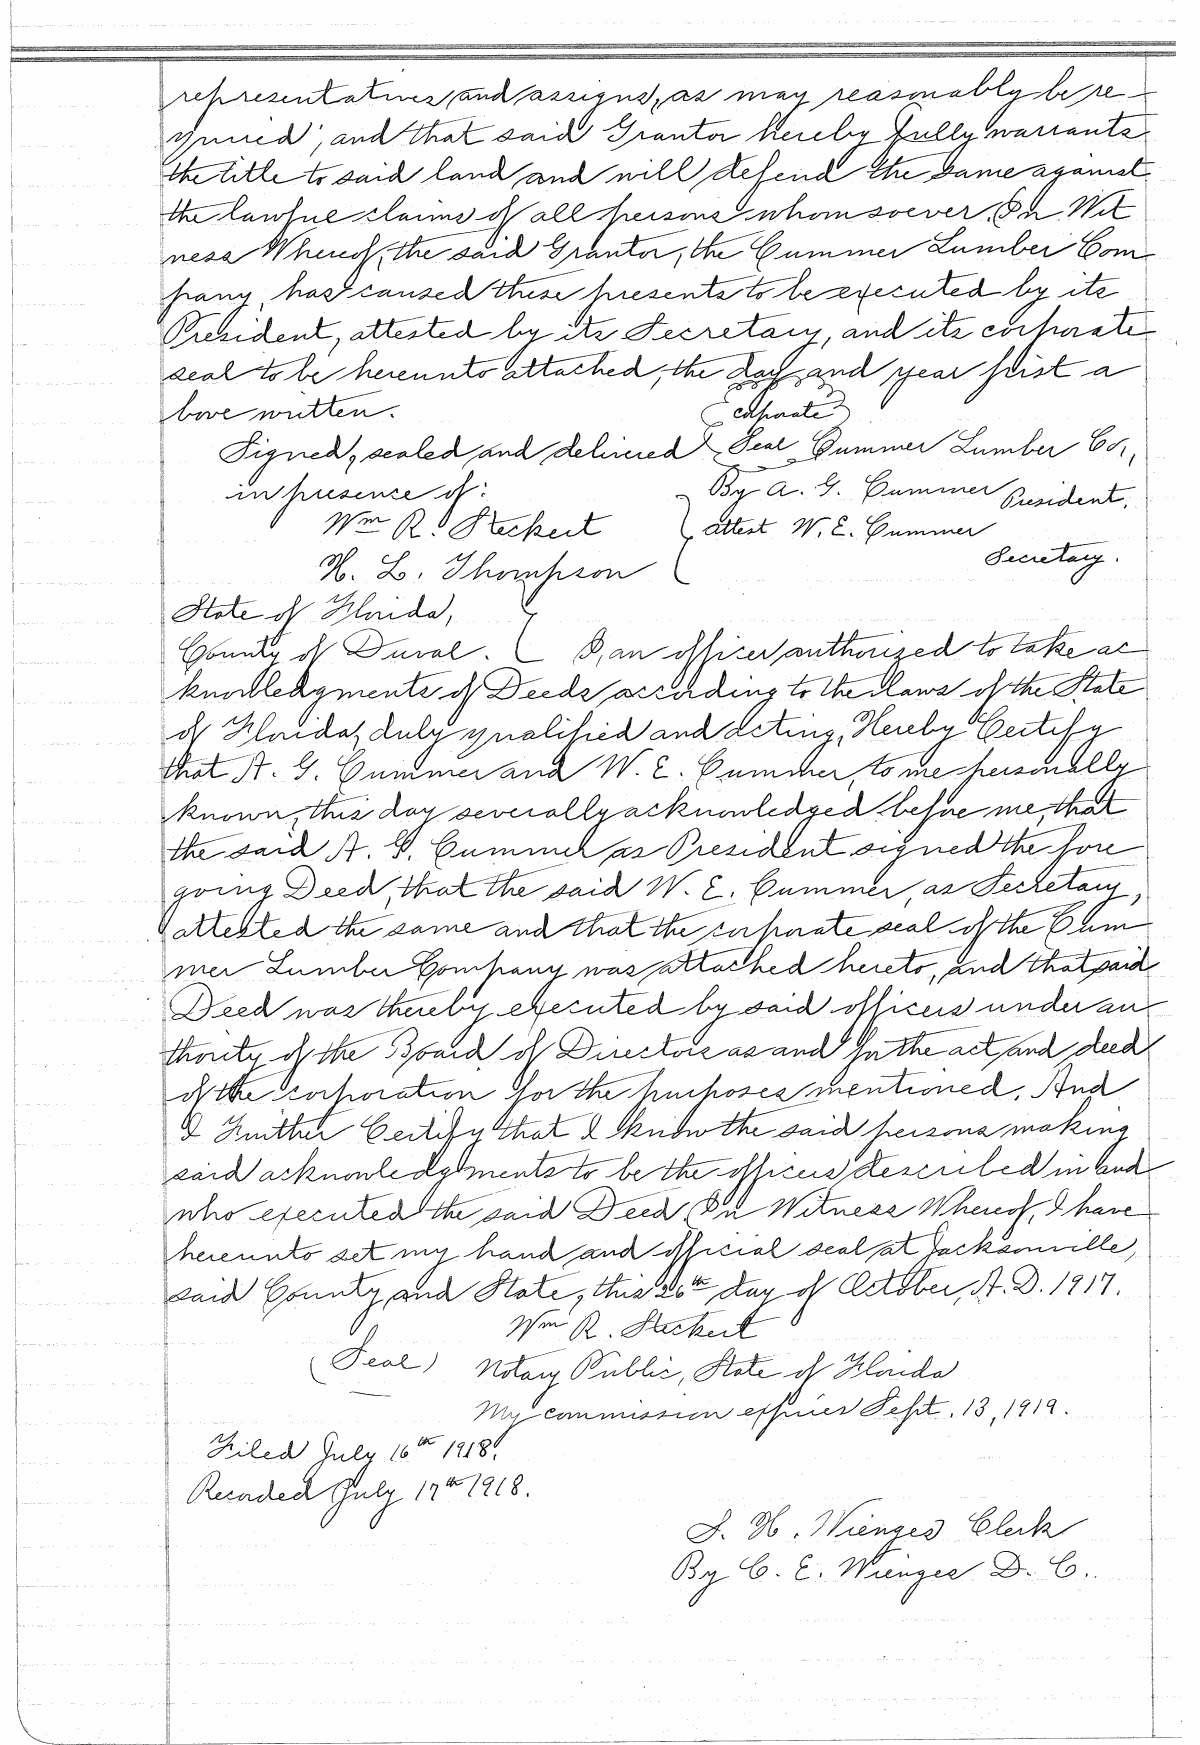 representatives and assigns, as may reasonably be re-
quired; and that said Grantor hereby fully warrants
the title to said land and will defend the same against
the lawful claims of all persons whomsoever. In Wit
ness Whereof, the said Grantor, the Cummer Lumber Com
pany, has caused these presents to be executed by its
President, attested by its Secretary, and its corporate
seal to be hereunto attached, the day and year first a
bove written.
corporate
Signed, sealed and delivered Seal Cummer Lumber Co.,
in presence of: By A. G. Cummer President.
Wm R. Steckert attest W. E. Cummer
Secretary.
H. L. Thompson
State of Florida,
County of Duval. I, an officer authorized to take ac
knowledgments of Deeds according to the laws of the State
of Florida, duly qualified and acting, Hereby Certify
that A. G. Cummer and W. E. Cummer, to me personally
known, this day severally acknowledged before me, that
the said A. G. Cummer as President signed the fore
going Deed, that the said W. E. Cummer, as Secretary,
attested the same and that the corporate seal of the Cum
mer Lumber Company was attached hereto, and that said
Deed was thereby executed by said officers under au
thority of the Board of Directors as and for the act and deed
of the corporation for the purposes mentioned. And
I Further Certify that I know the said persons making
said acknowledgments to be the officers described in and
who executed the said Deed. In Witness Whereof, I have
hereunto set my hand and official seal at Jacksonville,
said County and State, this 26th day of October, A. D. 1917.
Wm R. Steckert
(Seal) Notary Public, State of Florida
My commission expires Sept. 13, 1919.
Filed July 16th 1918.
Recorded July 17th 1918.
S. H. Wienges Clerk
By C. E. Wienges D. C..